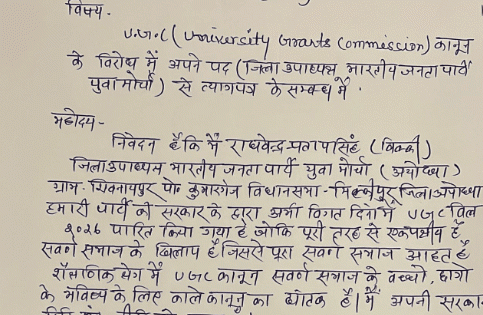 विषय-
U.G.C (University Grants Commission) कानून
के विरोध में अपने पद (जिला उपाध्यक्ष भारतीय जनता पार्टी
युवा मोर्चा) से त्यागपत्र के सम्बन्ध में.
महोदय-
निवेदन है कि मैं राघवेन्द्र प्रताप सिंह (विक्की)
जिला उपाध्यक्ष भारतीय जनता पार्टी युवा मोर्चा (अयोध्या)
ग्राम- शिवनाथपुर पो० कुमारगंज विधानसभा- मिल्कीपुर जिला अयोध्या
हमारी पार्टी की सरकार के द्वारा अभी विगत दिनों में UGC बिल
2026 पारित किया गया है जोकि पूरी तरह से एकपक्षीय है
सवर्ण समाज के खिलाफ है जिससे पूरा सवर्ण समाज आहत है
शैक्षणिक क्षेत्र में UGC कानून सवर्ण समाज के बच्चों, छात्रों
के भविष्य के लिए काले कानून का द्योतक है। मैं अपनी सरकार